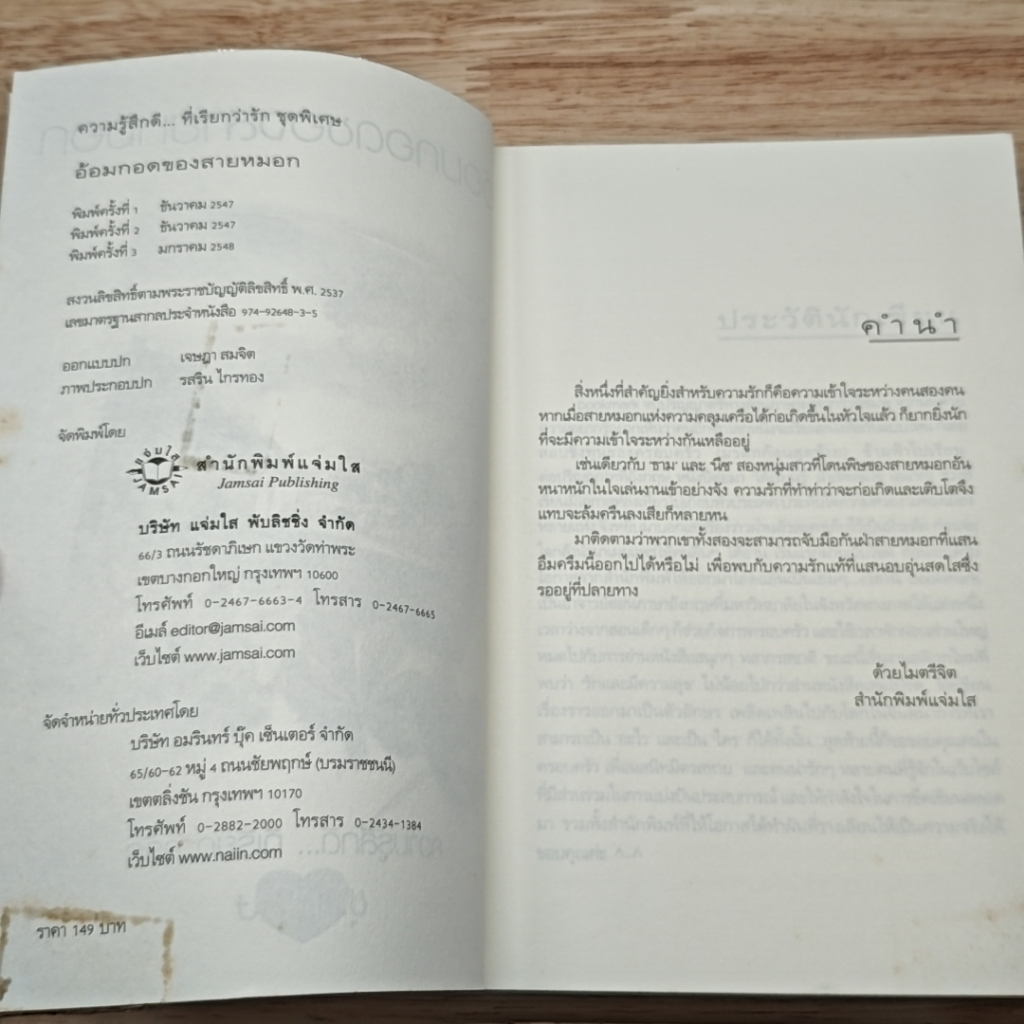 ความรู้สึกดี... ที่เรียกว่ารัก ชุดพิเศษ
อ้อมกอดของสายหมอก
พิมพ์ครั้งที่ 1 ธันวาคม 2547
พิมพ์ครั้งที่ 2 ธันวาคม 2547
พิมพ์ครั้งที่ 3 มกราคม 2548
สงวนลิขสิทธิ์ตามพระราชบัญญัติลิขสิทธิ์ พ.ศ. 2537
เลขมาตรฐานสากลประจำหนังสือ 974-92648-3-5
ออกแบบปก เจษฎา สมจิต
ภาพประกอบปก รสริน ไกรทอง
จัดพิมพ์โดย
แจ่มใส
JAMSAI
สำนักพิมพ์แจ่มใส
Jamsai Publishing
บริษัท แจ่มใส พับลิชชิ่ง จำกัด
66/3 ถนนรัชดาภิเษก แขวงวัดท่าพระ
เขตบางกอกใหญ่ กรุงเทพฯ 10600
โทรศัพท์ 0-2467-6663-4 โทรสาร 0-2467-6665
อีเมล์ editor@jamsai.com
เว็บไซต์ www.jamsai.com
จัดจำหน่ายทั่วประเทศโดย
บริษัท อมรินทร์ บุ๊ค เซ็นเตอร์ จำกัด
65/60-62 หมู่ 4 ถนนชัยพฤกษ์ (บรมราชชนนี)
เขตตลิ่งชัน กรุงเทพฯ 10170
โทรศัพท์ 0-2882-2000 โทรสาร 0-2434-1384
เว็บไซต์ www.naiin.com
ราคา 149 บาท
คำนำ
สิ่งหนึ่งที่สำคัญยิ่งสำหรับความรักก็คือความเข้าใจระหว่างคนสองคน
หากเมื่อสายหมอกแห่งความคลุมเครือได้ก่อเกิดขึ้นในหัวใจแล้ว ก็ยากยิ่งนัก
ที่จะมีความเข้าใจระหว่างกันเหลืออยู่
เช่นเดียวกับ 'ธาม' และ 'นีช' สองหนุ่มสาวที่โดนพิษของสายหมอกอัน
หนาหนักในใจเล่นงานเข้าอย่างจัง ความรักที่ทำท่าว่าจะก่อเกิดและเติบโตจึง
แทบจะล้มครืนลงเสียก็หลายหน
มาติดตามว่าพวกเขาทั้งสองจะสามารถจับมือกันฝ่าสายหมอกที่แสน
อึมครึมนี้ออกไปได้หรือไม่ เพื่อพบกับความรักแท้ที่แสนอบอุ่นสดใสซึ่ง
รออยู่ที่ปลายทาง
ด้วยไมตรีจิต
สำนักพิมพ์แจ่มใส